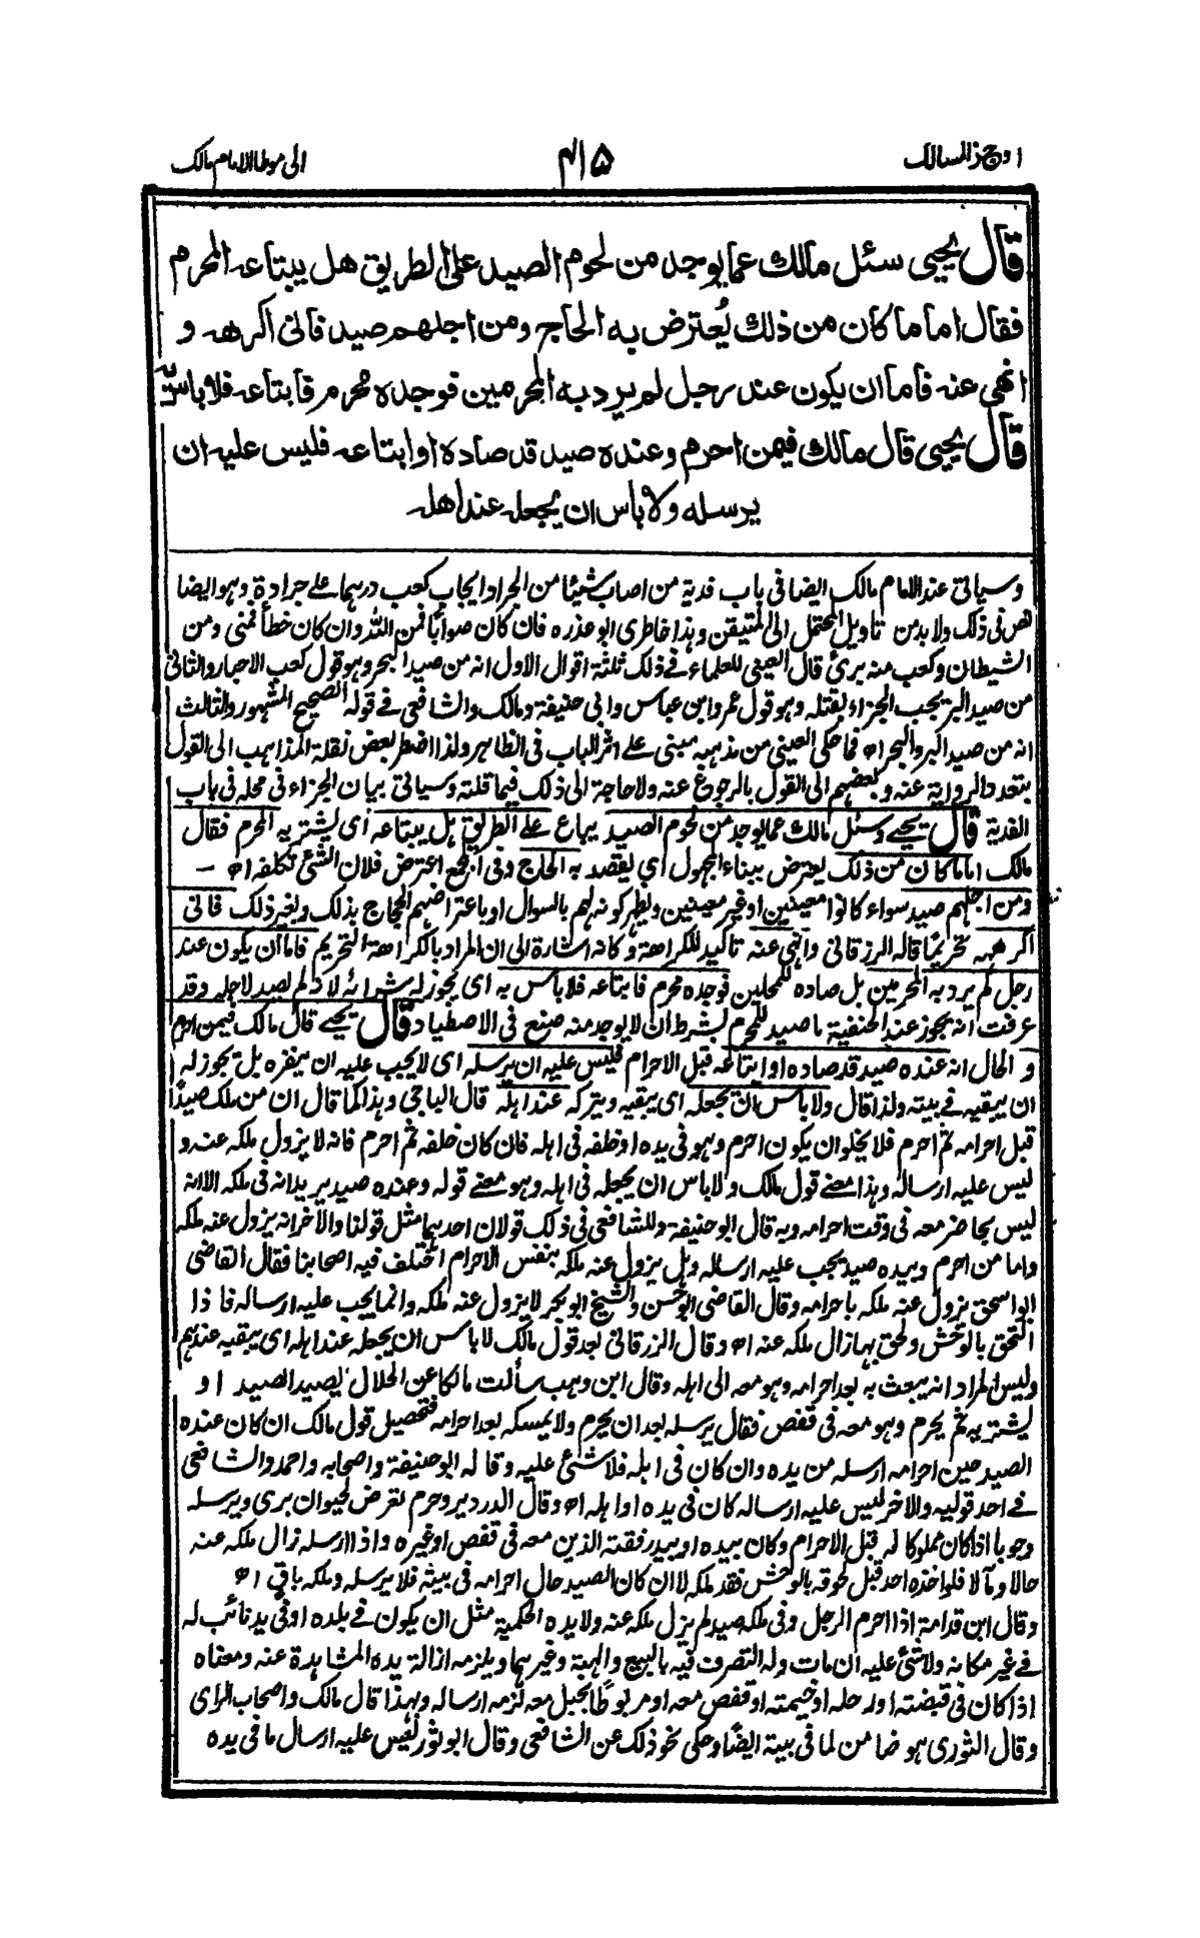 اوجز المسالك
٤١٥
الى موطا الامام مالك
قال يحيى سئل مالك عما يوجد من لحوم الصيد على الطريق هل يبتاعه المحرم
فقال اما ما كان من ذلك يُعترض به الحاج ومن اجلهم صيد فانى اكرهه و
انهى عنه فاما ان يكون عند رجل لم يرد به المحرمين فوجده محرم فابتاعه فلا باس به
قال يحيى قال مالك فيمن احرم وعنده صيد قد صاده او ابتاعه فليس عليه ان
يرسله ولا باس ان يجعله عند اهله
وسياتى عند الامام مالك ايضا فى باب فدية من اصاب شيئا من الجراد ايجاب كعب درهما على جرادة وهو ايضا
نص فى ذلك ولا بد من تاويل المحتمل الى المتيقن وهذا خاطرى ابو عذره فان كان صوابا فمن الله وان كان خطأ فمنى ومن
الشيطان وكعب منه برئ قال العينى للعلماء فى ذلك ثلثة اقوال الاول انه من صيد البحر وهو قول كعب الاحبار والثانى
من صيد البر يجب الجزاء بقتله وهو قول عمر وابن عباس وابى حنيفة ومالك والشافعى فى قوله الصحيح المشهور والثالث
انه من صيد البر والبحر اه فما حكى العينى من مذهبه مبنى على اثر الباب فى الظاهر ولذا اضطر بعض نقلة المذاهب الى القول
بتعدد الرواية عنه وبعضهم الى القول بالرجوع عنه ولا حاجة الى ذلك فيما قلته وسياتى بيان الجزاء فى محله فى باب
الفدية قال يحيى وسئل مالك عما يوجد من لحوم الصيد يباع على الطريق هل يبتاعه اى يشتريه المحرم فقال
مالك اما ما كان من ذلك يعترض ببناء المجهول اى يقصد به الحاج وفى المجمع اعترض فلان الشئ تكلفه اه -
ومن اجلهم صيد سواء كانوا معينين او غير معينين ويظهر كونه لهم بالسوال او باعتراضهم الحجاج بذلك وبغير ذلك فانى
اكرهه تحريما قاله الزرقانى وانهى عنه تاكيد للكراهة وكانه اشارة الى ان المراد بالكراهة التحريم فاما ان يكون عند
رجل لم يرد به المحرمين بل صاده للمحلين فوجده محرم فابتاعه فلا باس به اى يجوز له شرائه لانه لم يصد لاجله وقد
عرفت انه يجوز عند الحنفية ما صيد للمحرم بشرط ان لا يوجد منه صنع فى الاصطياد قال يحيى قال مالك فيمن احرم
و الحال انه عنده صيد قد صاده او ابتاعه قبل الاحرام فليس عليه ان يرسله اى لا يجب عليه ان ينفره بل يجوز له
ان يبقيه فى بيته ولذا قال ولا باس ان يجعله اى يبقيه ويتركه عند اهله قال الباجى وهذا كما قال ان من ملك صيدا
قبل احرامه ثم احرم فلا يخلو ان يكون احرم وهو فى يده او خلفه فى اهله فان كان خلفه ثم احرم فانه لا يزول ملكه عنه و
ليس عليه ارساله وهذا معنى قول مالك ولا باس ان يجعله فى اهله وهو معنى قوله وعنده صيد يريد انه فى ملكه الا انه
ليس بحاضر معه فى وقت احرامه وبه قال ابو حنيفة وللشافعى فى ذلك قولان احدهما مثل قولنا والآخر انه يزول عنه ملكه
واما من احرم وبيده صيد يجب عليه ارساله وهل يزول عنه ملكه بنفس الاحرام اختلف فيه اصحابنا فقال القاضى
ابو اسحق يزول عنه ملكه باحرامه وقال القاضى ابو الحسن والشيخ ابو بكر لا يزول عنه ملكه وانما يجب عليه ارساله فاذا
التحق بالوحش ولحق بها زال ملكه عنه اه وقال الزرقانى بعد قول مالك لا باس ان يجعله عند اهله اى يبقيه عندهم
وليس المراد انه يبعث به بعد احرامه وهو معه الى اهله وقال ابن وهب سألت مالكا عن الحلال يصيد الصيد او
يشتريه ثم يحرم وهو معه فى قفص فقال يرسله بعد ان يحرم ولا يمسكه بعد احرامه فتحصيل قول مالك ان كان عنده
الصيد حين احرامه ارسله من يده وان كان فى اهله فلا شئ عليه وقاله ابو حنيفة واصحابه واحمد والشافعى
فى احد قوليه والاخر ليس عليه ارساله كان فى يده او اهله اه وقال الدردير وحرم تعرض لحيوان برى ويرسله
وجوبا اذا كان مملوكا له قبل الاحرام وكان بيده او بيد رفقته الذين معه فى قفص او غيره واذا ارسله زال ملكه عنه
حالا ومآلا فلو اخذه احد قبل لحوقه بالوحش فقد ملكه لا ان كان الصيد حال احرامه فى بيته فلا يرسله وملكه باق اه
وقال ابن قدامة اذا احرم الرجل وفى ملكه صيد لم يزل ملكه عنه ولا يده الحكمية مثل ان يكون فى بلده او فى يد نائب له
فى غير مكانه ولا شئ عليه ان مات وله التصرف فيه بالبيع والهبة وغيرهما ويلزمه ازالة يده المشاهدة عنه ومعناه
اذا كان فى قبضته او رحله او خيمته او قفص معه او مربوطا بحبل معه لزمه ارساله وبهذا قال مالك واصحاب الراى
وقال الثورى هو ضامن لما فى بيته ايضا وحكى نحو ذلك عن الشافعى وقال ابو ثور ليس عليه ارسال ما فى يده